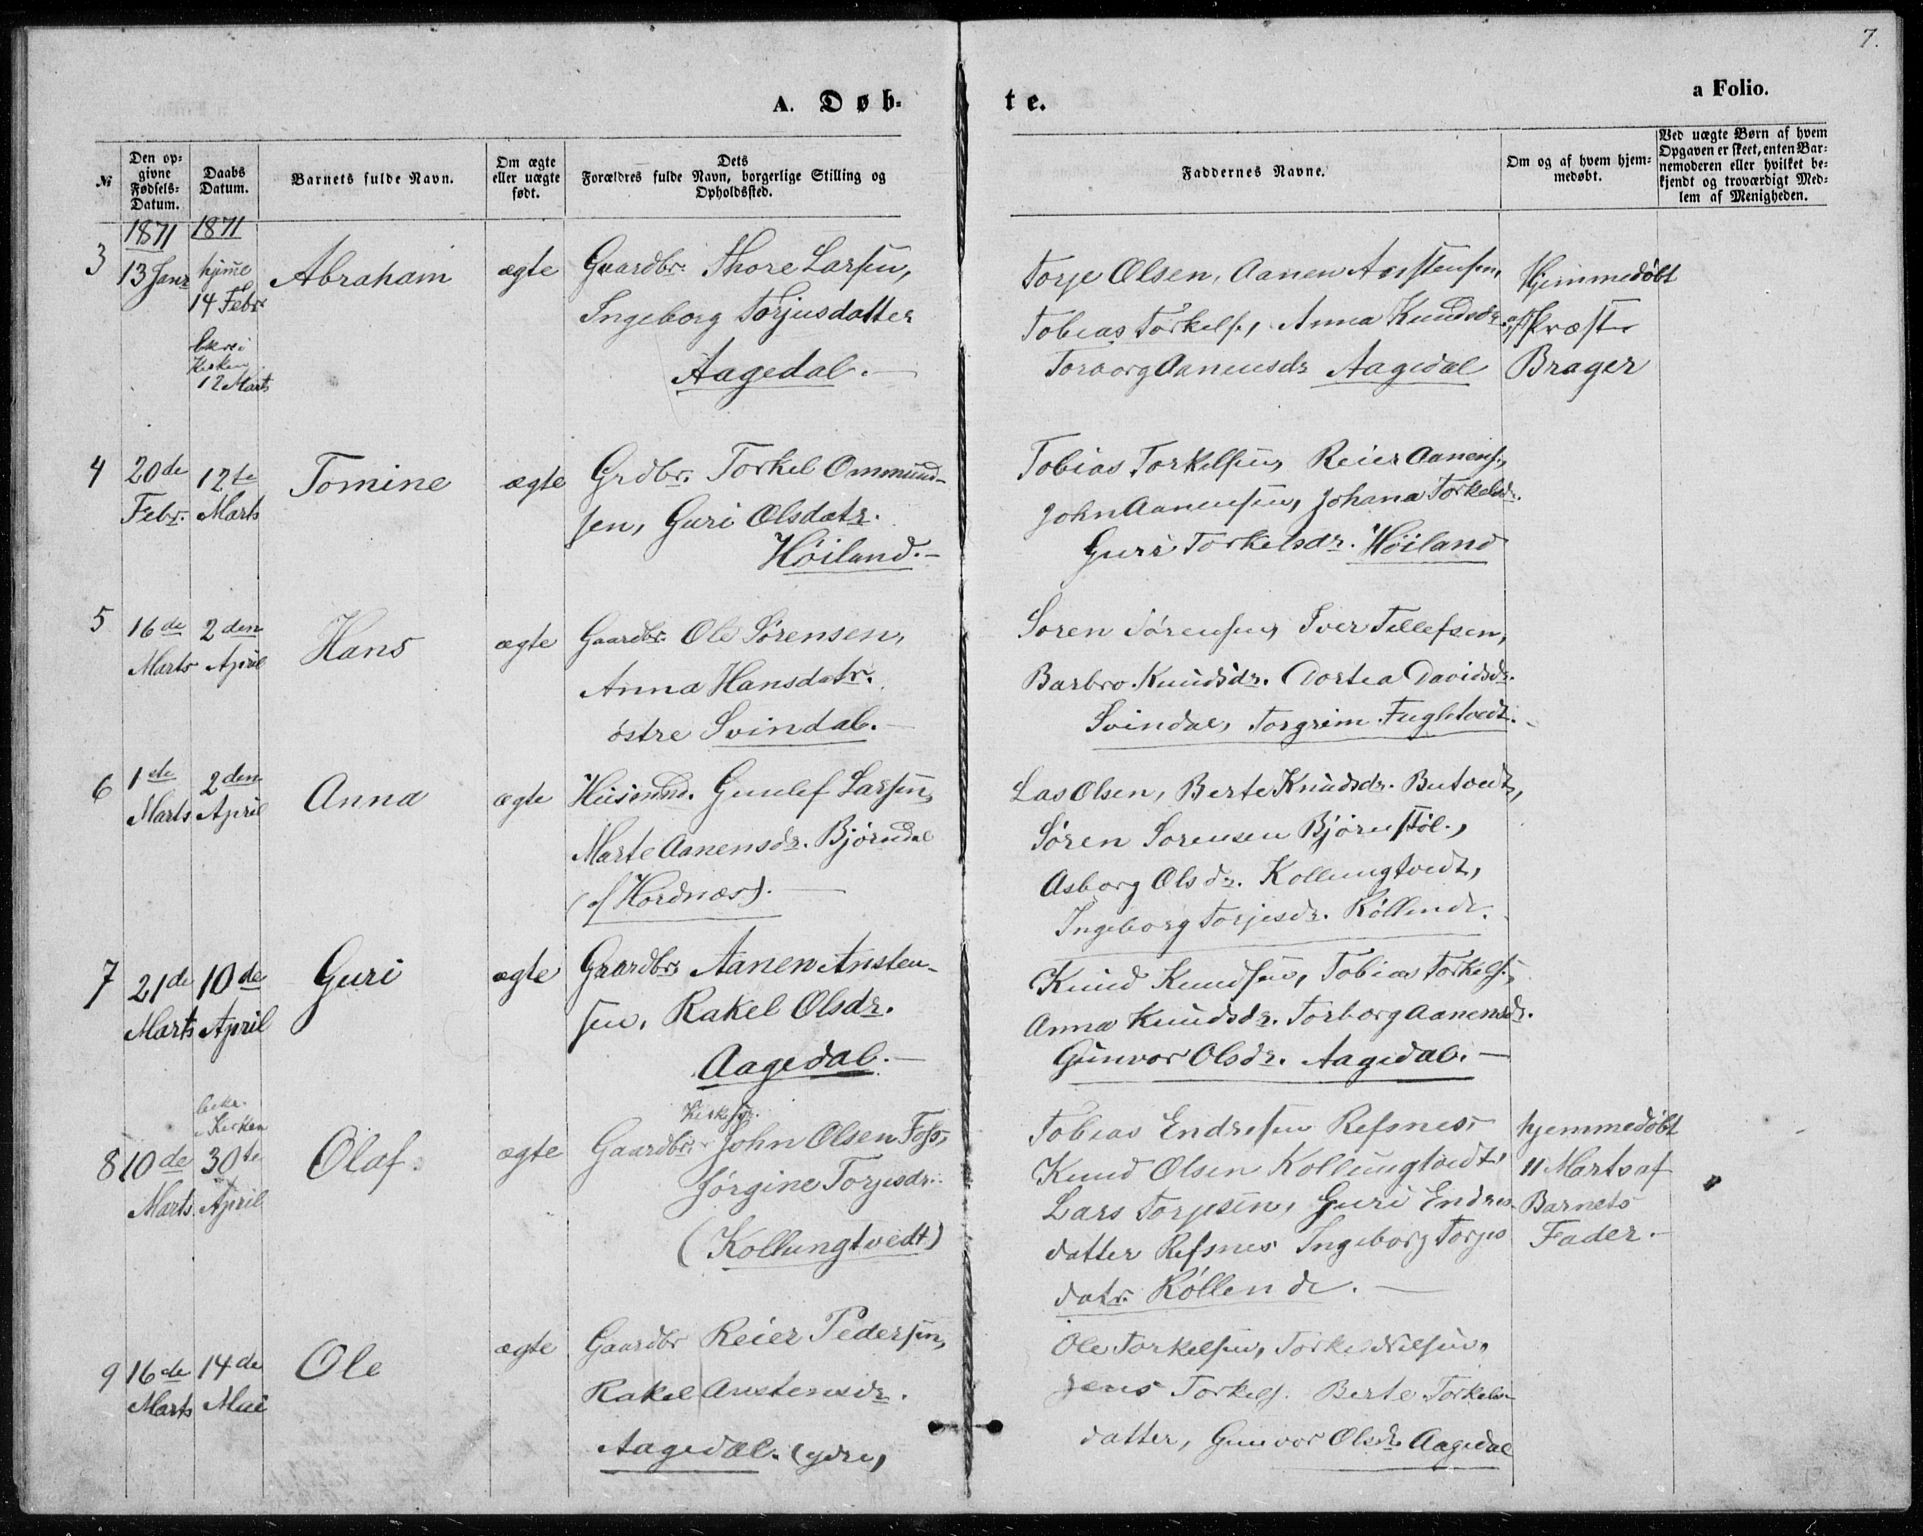 7.
A. Døb-
te.
a Folio.
№
Den op-
givne
Fødsels-
Datum.
Daabs
Datum.
Barnets fulde Navn.
Om ægte
eller uægte
født.
Dets
Forældres fulde Navn, borgerlige Stilling og
Opholdssted.
Faddernes Navne.
Om og af hvem hjem-
medøbt.
Ved uægte Børn af hvem
Opgaven er skeet, enten Bar-
nemoderen eller hvilket be-
kjendt og troværdigt Med-
lem af Menigheden.
1871
1871
3
13 Janr
hjme
14 Febr.
i
Kirken
12 Marts
Abraham
ægte
Gaardbr. Thore Larsen,
Ingeborg Torjusdatter
Aagedal.
Torje Olsen, Aanen Anstensen,
Tobias Torkels., Anna Knudsdr.
Torborg Aanensdr Aagedal
Hjemmedøbt
af Præst
Brager
4
20de
Febr.
12te
Marts
Tomine
ægte
Grdbr. Torkel Ommund-
sen, Guri Olsdatr.
Høiland.
Tobias Torkelsen, Reier Aanens.,
John Aanensen, Johana Torkelsdr.
Guri Torkelsdr. Høiland
5
16de
Marts
2den
April
Hans
ægte
Gaardbr. Ole Sørensen,
Anna Hansdatr.
østre Svindal.
Søren Sørensen, Iver Tellefsen,
Barbro Knudsdr. Dortea Davidsdr.
Svindal, Torgrim Fugletvedt.
6
1ste
Marts
2den
April
Anna
ægte
Huusmd. Gunlef Larsen,
Marte Aanensdr. Bjørndal
(af Hordnæs).
Las Olsen, Berte Knudsdr. Butvedt,
Søren Sørensen Bjørnstøl.,
Asborg Olsdr. Kollungtvedt,
Ingeborg Torjesdr. Røllend.
7
21de
Marts
10de
April
Guri
ægte
Gaardbr Aanen Ansten-
sen, Rakel Olsdr.
Aagedal.
Knud Knudsen, Tobias Torkels.,
Anna Knudsdr. Torborg Aanensdr.
Gunvor Olsdr. Aagedal.
8
10de
Marts
bekr.
i Kirken
30te
April
Olaf.
ægte
Kirkes.
Gaardbr. John Olsen Foss,
Jørgine Torjesdr.
(Kollungtvedt)
Tobias Endresen Refsnes,
Knud Olsen Kollungtvedt,
Lars Torjesen, Guri Endres
datter Refsnes Ingeborg Torjes
datr. Røllend.
hjemmedøbt
11 Marts af
Barnets
Fader.
9
16de
Marts
14de
Mai
Ole
ægte
Gaardbr Reier Pedersen,
Rakel Anstensdr.
Aagedal. (ydre)
Ole Torkelsen, Torkel Nilsen,
Jens Torkels. Berte Torkels-
datter, Gunvor Olsdr Aagedal